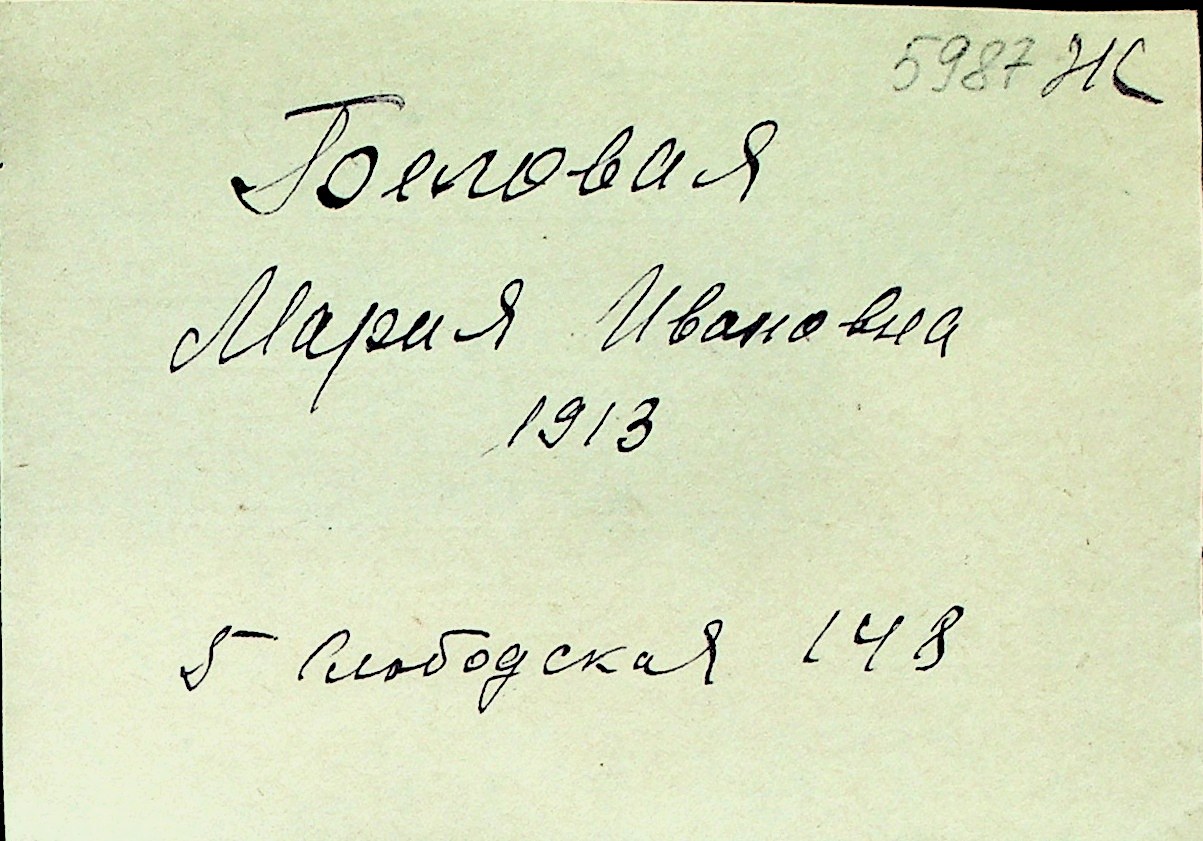 5987 Ж
Беловая
Мария Ивановна
1913
5 Слободская 148